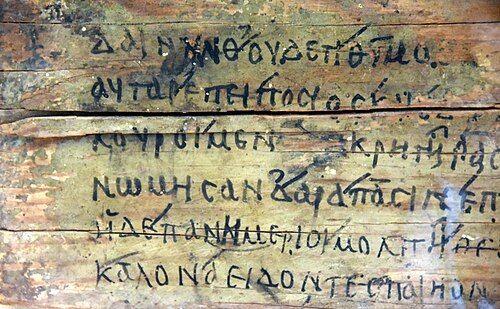 ΔΑΙΝΝΝΘΟΥΔΕΠΘΥΜΟ
ΑΥΤΑΡΕΠΕΙΠΟϹΙΟϹΚ
ΚΟΥΡΟΙΜΕΝ ΚΡΗΤΗΡΑϹ
ΝΩΜΗϹΑΝΔΑΡΑΠΑϹΙΝΕΠ
ΗΔΕΠΑΝΗΜΕΡΙΟΙΜΟΛΠΗΘΕ
ΚΑΛΟΝΑΕΙΔΟΝΤΕϹΠΑΙΗΟΝ